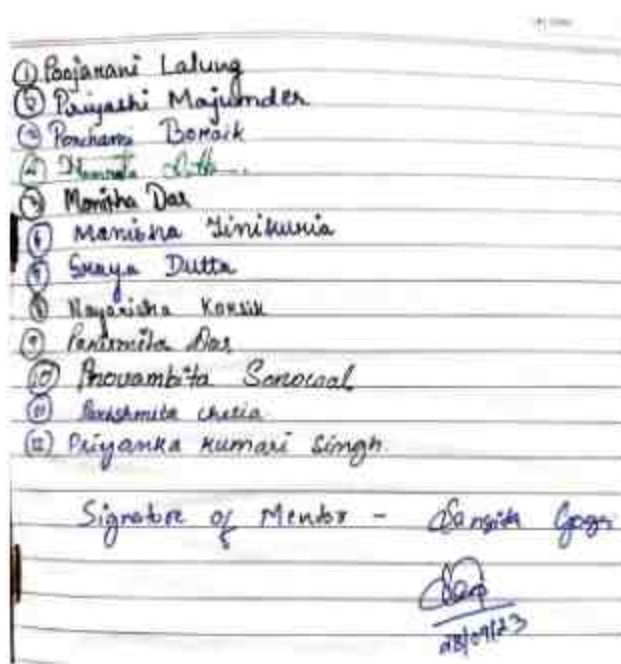 ① Poojarani Lalung
② Priyashi Majumder
③ Panchami Boraik
④ Namrata Dutta
⑤ Monisha Das
⑥ Manisha Tinikuria
⑦ Sraya Dutta
⑧ Nayanisha Konsik
⑨ Parismita Das
⑩ Provambita Sonowal
⑪ Parishmita chetia
⑫ Priyanka Kumari Singh.
Signature of Mentor - Sangita Gogoi
28/09/23